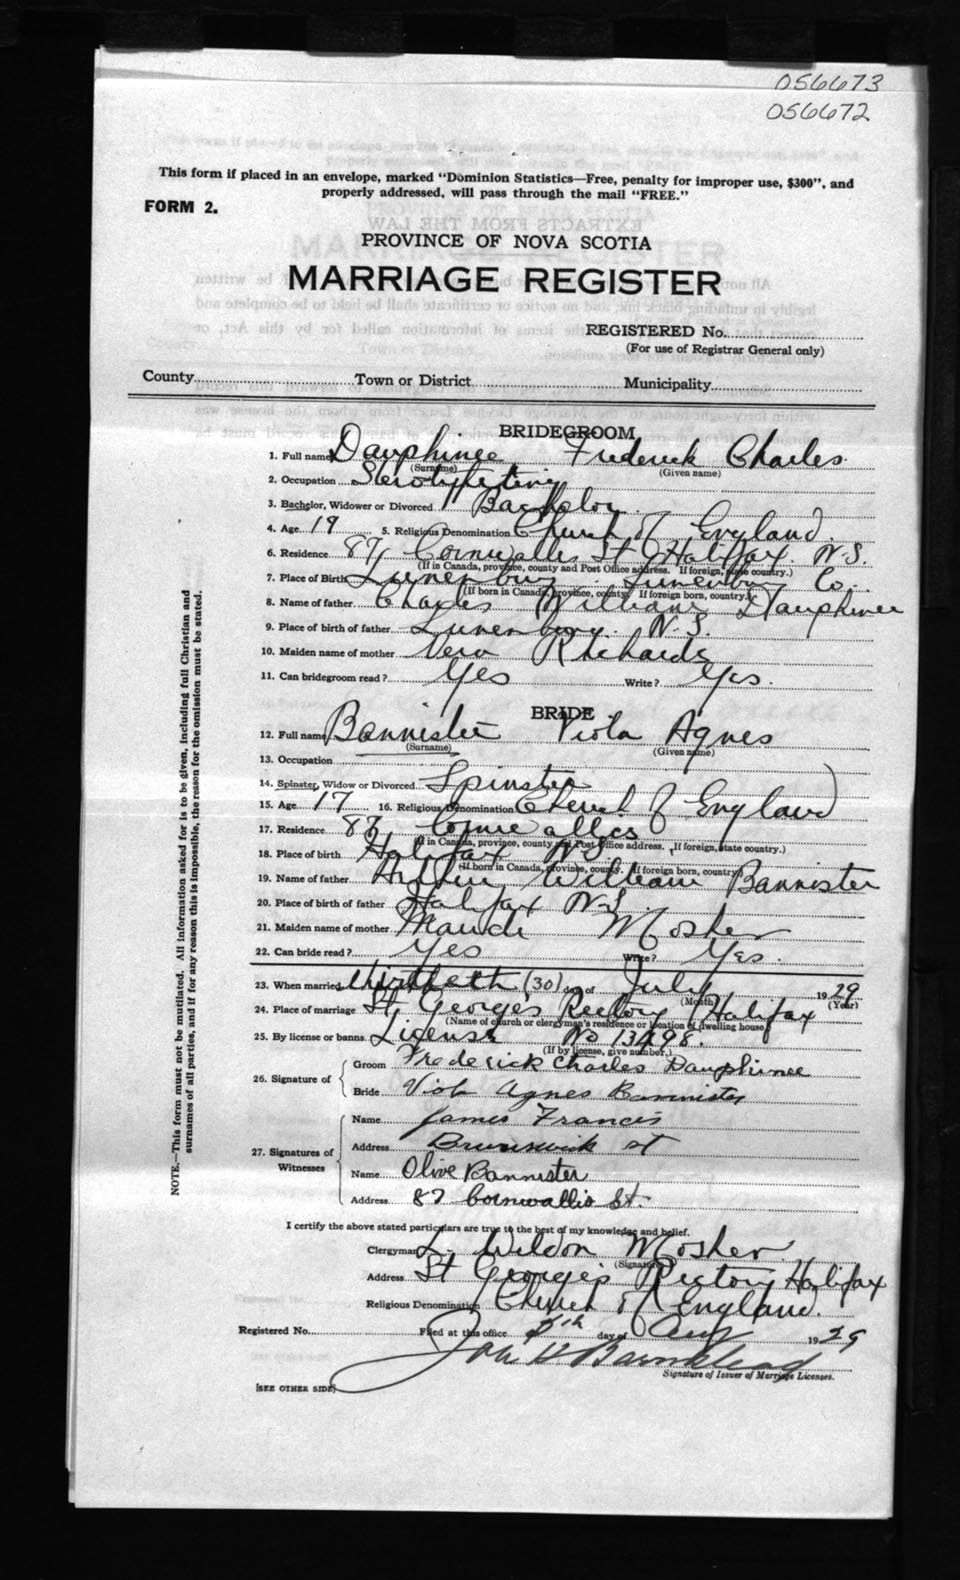 056673
056672
This form if placed in an envelope, marked "Dominion Statistics—Free, penalty for improper use, $300", and
properly addressed, will pass through the mail "FREE."
FORM 2.
PROVINCE OF NOVA SCOTIA
MARRIAGE REGISTER
REGISTERED No.
(For use of Registrar General only)
County Town or District Municipality
BRIDEGROOM
1. Full name Dauphinee Frederick Charles
(Surname) (Given name)
2. Occupation
3. Bachelor, Widower or Divorced Bachelor
4. Age 19 5. Religious Denomination Church of England
6. Residence 87 Cornwallis St Halifax N.S.
(If in Canada, province, county and Post Office address. If foreign, state country.)
7. Place of Birth Lunenburg Lunenburg Co.
(If born in Canada, province, county. If foreign born, country.)
8. Name of father Charles William Dauphinee
9. Place of birth of father Lunenburg N.S.
10. Maiden name of mother Vera Richards
11. Can bridegroom read? Yes Write? Yes.
BRIDE
12. Full name Bannister Viola Agnes
(Surname) (Given name)
13. Occupation
14. Spinster, Widow or Divorced Spinster
15. Age 17 16. Religious Denomination Church of England
17. Residence 87 Cornwallis
(If in Canada, province, county and Post Office address. If foreign, state country.)
18. Place of birth Halifax N.S.
(If born in Canada, province, county. If foreign born, country)
19. Name of father Arthur William Bannister
20. Place of birth of father Halifax N.S.
21. Maiden name of mother Maude Mosher
22. Can bride read? Yes Write? Yes.
23. When married thirtieth (30) day of July 1929
(Month) (Year)
24. Place of marriage St George's Rectory Halifax
(Name of church or clergyman's residence or location of dwelling house)
25. By license or banns License No 13498.
(If by license, give number.)
26. Signature of Groom Frederick Charles Dauphinee
Bride Viola Agnes Bannister
27. Signatures of Witnesses Name James Francis
Address Brunswick st
Name Olive Bannister
Address 87 Cornwallis St.
I certify the above stated particulars are true to the best of my knowledge and belief.
Clergyman L. Wildon Mosher
(Signature)
Address St George's Rectory Halifax
Religious Denomination Church of England.
Registered No. Filed at this office day of Aug 1929
Signature of Issuer of Marriage Licenses.
[SEE OTHER SIDE]
NOTE.—This form must not be mutilated. All information asked for is to be given, including full Christian and
surnames of all parties, and if for any reason this is impossible, the reason for the omission must be stated.